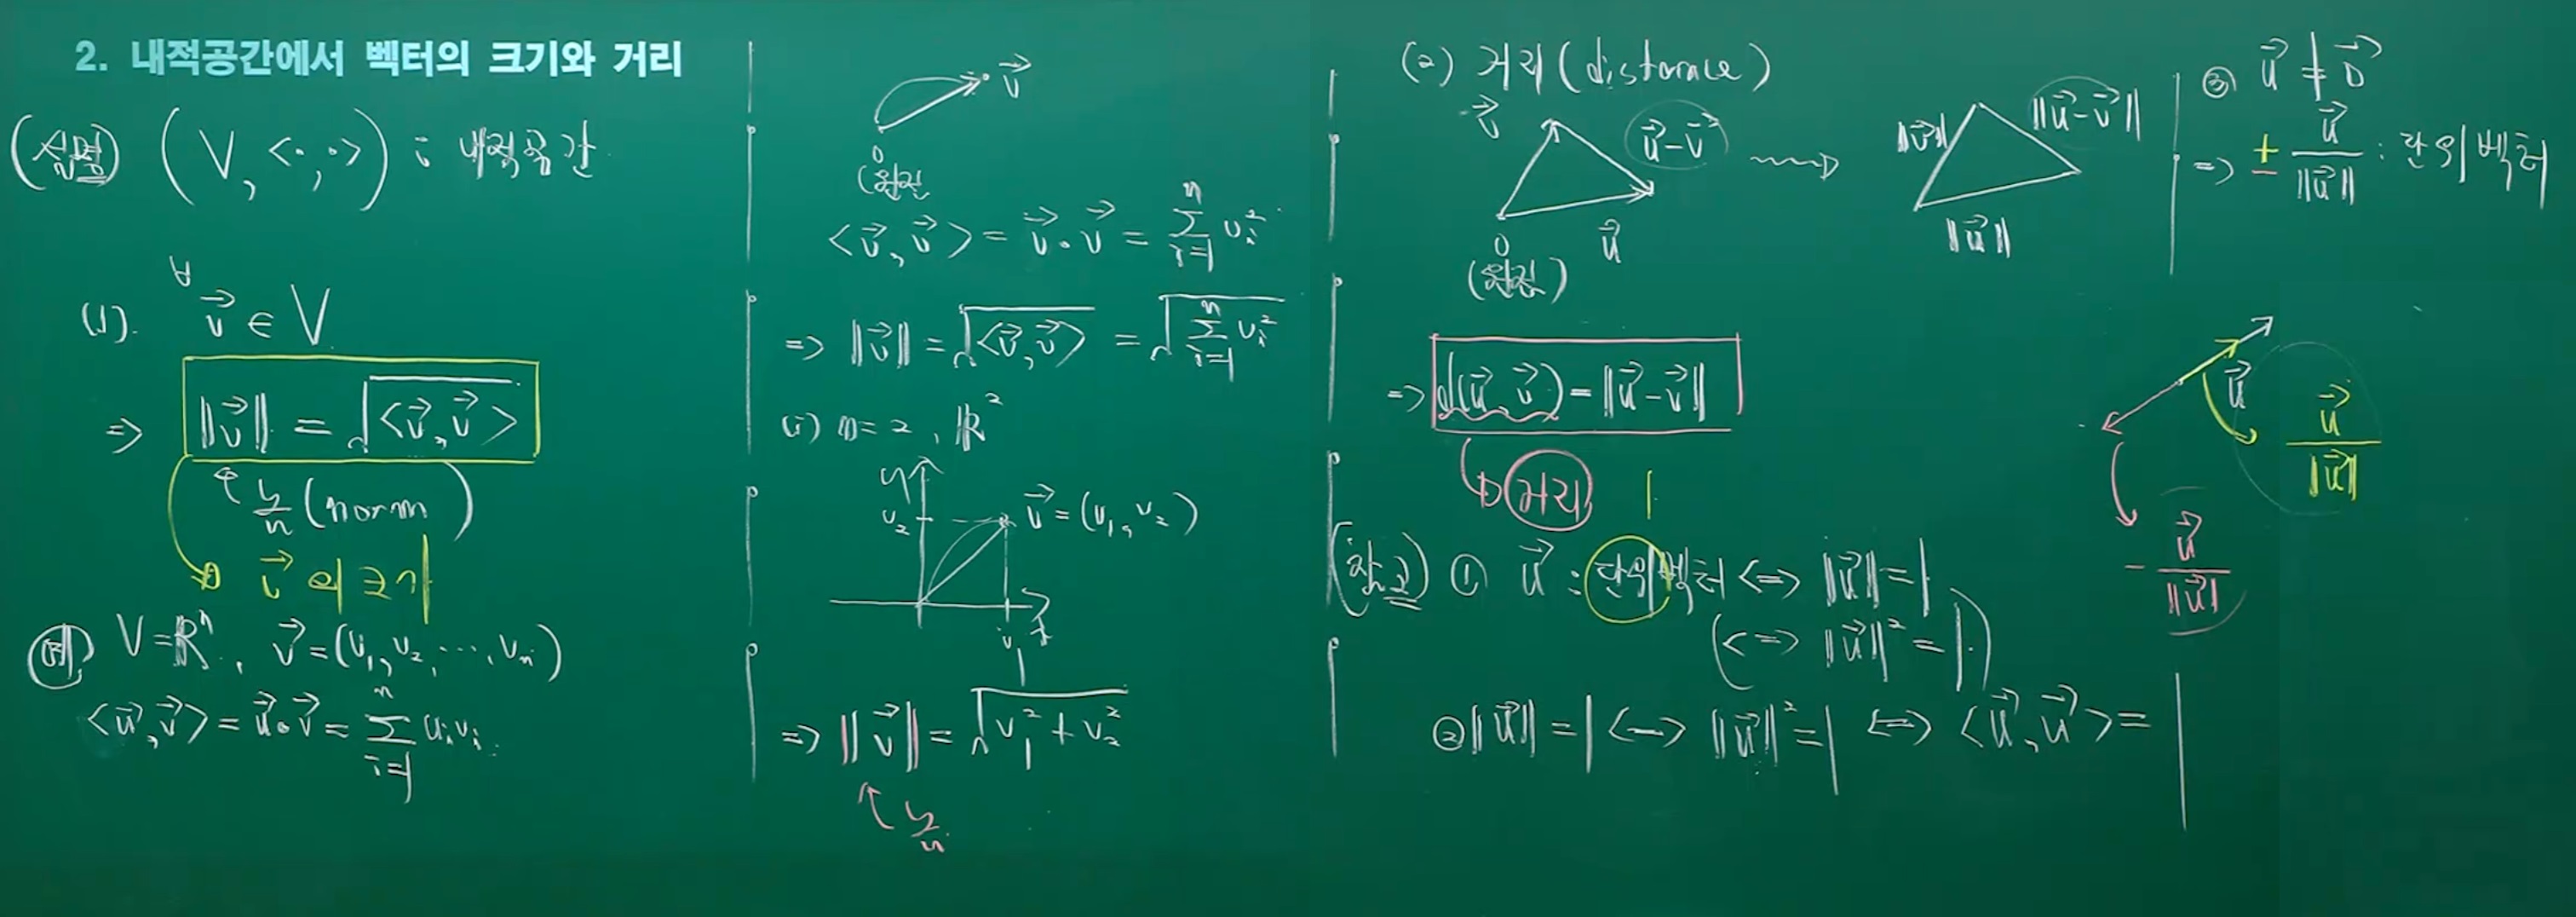 2. 내적공간에서 벡터의 크기와 거리
(설정) (V, <·,·>) : 내적공간
(1). ∀v⃗ ∈ V
⇒ ‖v⃗‖ = √<v⃗, v⃗>
놈 (norm)
v⃗의 크기
예) V=ℝⁿ, v⃗=(v₁, v₂, ⋯, vₙ)
<u⃗, v⃗> = u⃗·v⃗ = Σᵢ₌₁ⁿ uᵢvᵢ
v⃗
0
(원점)
<v⃗, v⃗> = v⃗·v⃗ = Σᵢ₌₁ⁿ vᵢ²
⇒ ‖v⃗‖ = √<v⃗, v⃗> = √Σᵢ₌₁ⁿ vᵢ²
i) n=2, ℝ²
y
v₂
v⃗=(v₁, v₂)
v₁
x
⇒ ‖v⃗‖ = √v₁²+v₂²
놈
(2) 거리 (distance)
v⃗
u⃗-v⃗
u⃗
0
(원점)
‖v⃗‖
‖u⃗-v⃗‖
‖u⃗‖
⇒ d(u⃗, v⃗) = ‖u⃗-v⃗‖
거리
1
(참고) ① u⃗ : 단위벡터 ⇔ ‖u⃗‖=1
(⇔ ‖u⃗‖²=1.)
② ‖u⃗‖=1 ⇔ ‖u⃗‖²=1 ⇔ <u⃗, u⃗>=1
③ u⃗ ≠ 0⃗
⇒ ± u⃗/‖u⃗‖ : 단위벡터
u⃗
u⃗/‖u⃗‖
- u⃗/‖u⃗‖